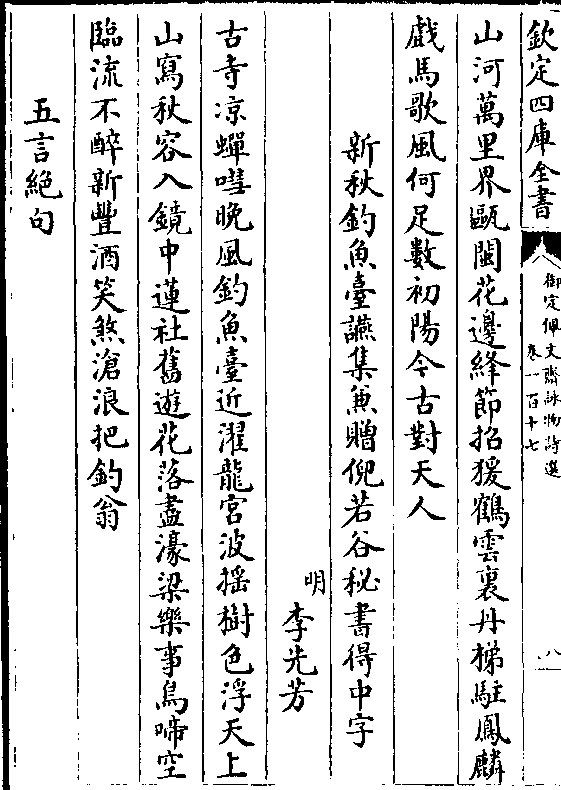 欽定四庫全書
御定佩文齋詠物詩選
卷一百十七
八
山河萬里界甌閩花邊絳節招猨鶴雲裏丹梯駐鳳麟
戲馬歌風何足數初陽今古對天人
新秋釣魚臺讌集兼贈倪若谷秘書得中字
明 李先芳
古寺凉蟬嘒晚風釣魚臺近濯龍宮波揺樹色浮天上
山寫秋容入鏡中蓮社舊遊花落盡濠梁樂事鳥啼空
臨流不醉新豐酒笑煞滄浪把釣翁
五言絶句